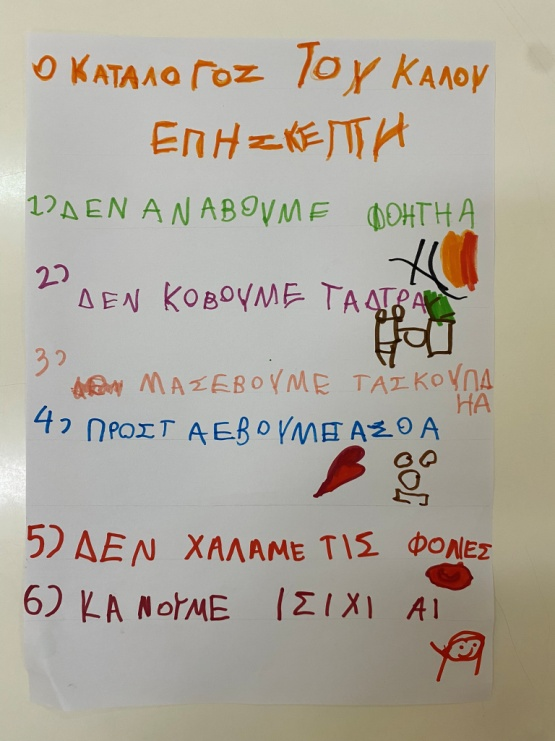 Ο ΚΑΤΑΛΟΓΟΣ ΤΟΥ ΚΑΛΟΥ
ΕΠΗΣΚΕΠΤΗ
1) ΔΕΝ ΑΝΑΒΟΥΜΕ ΦΟΗΤΗΑ
2) ΔΕΝ ΚΟΒΟΥΜΕ ΤΑΔΤΡΑ
3) ΜΑΣΕΒΟΥΜΕ ΤΑΣΚΟΥΠΔ
ΗΑ
4) ΠΡΟΣΤ ΑΕΒΟΥΜΕΤΑΣΟΑ
5) ΔΕΝ ΧΑΛΑΜΕ ΤΙΣ ΦΟΛΙΕΣ
6) ΚΑΝΟΥΜΕ ΙΣΙΧΙ ΑΙ